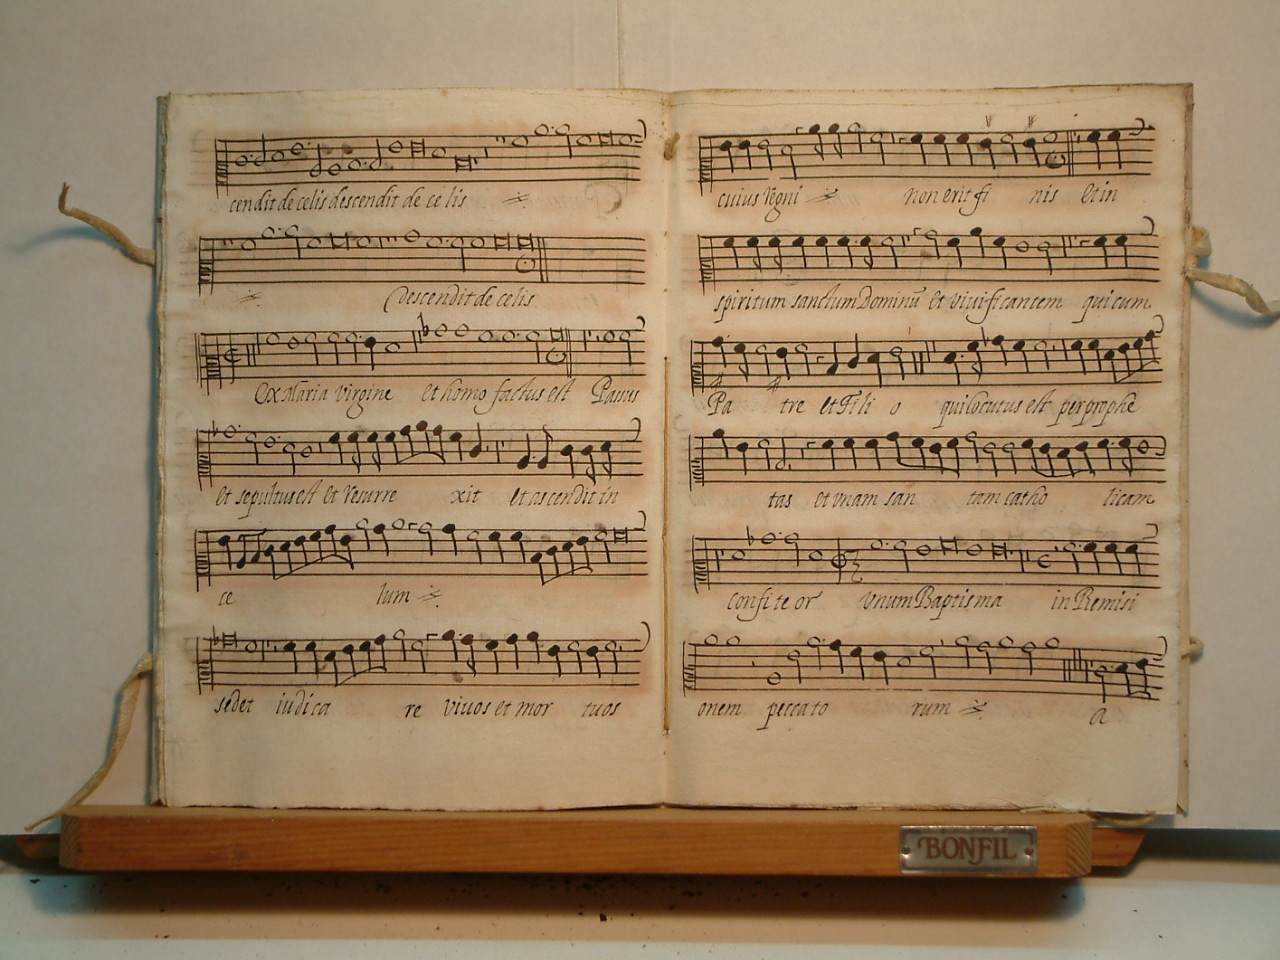 cendit de celis descendit de ce lis
descendit de celis
Ex Maria virgine et homo factus est Passus
et sepultus est et resurre xit et ascendit in
ce lum
sedet iudica re vivos et mor tuos
cuius regni non erit fi nis et in
spiritum sanctum Dominũ et vivificantem qui cum
Pa tre et Fi li o qui locutus est per prophe
tas et vnam san tam catho licam
Confi te or vnum Baptisma in Remisi
onem peccato rum a
BONFIL